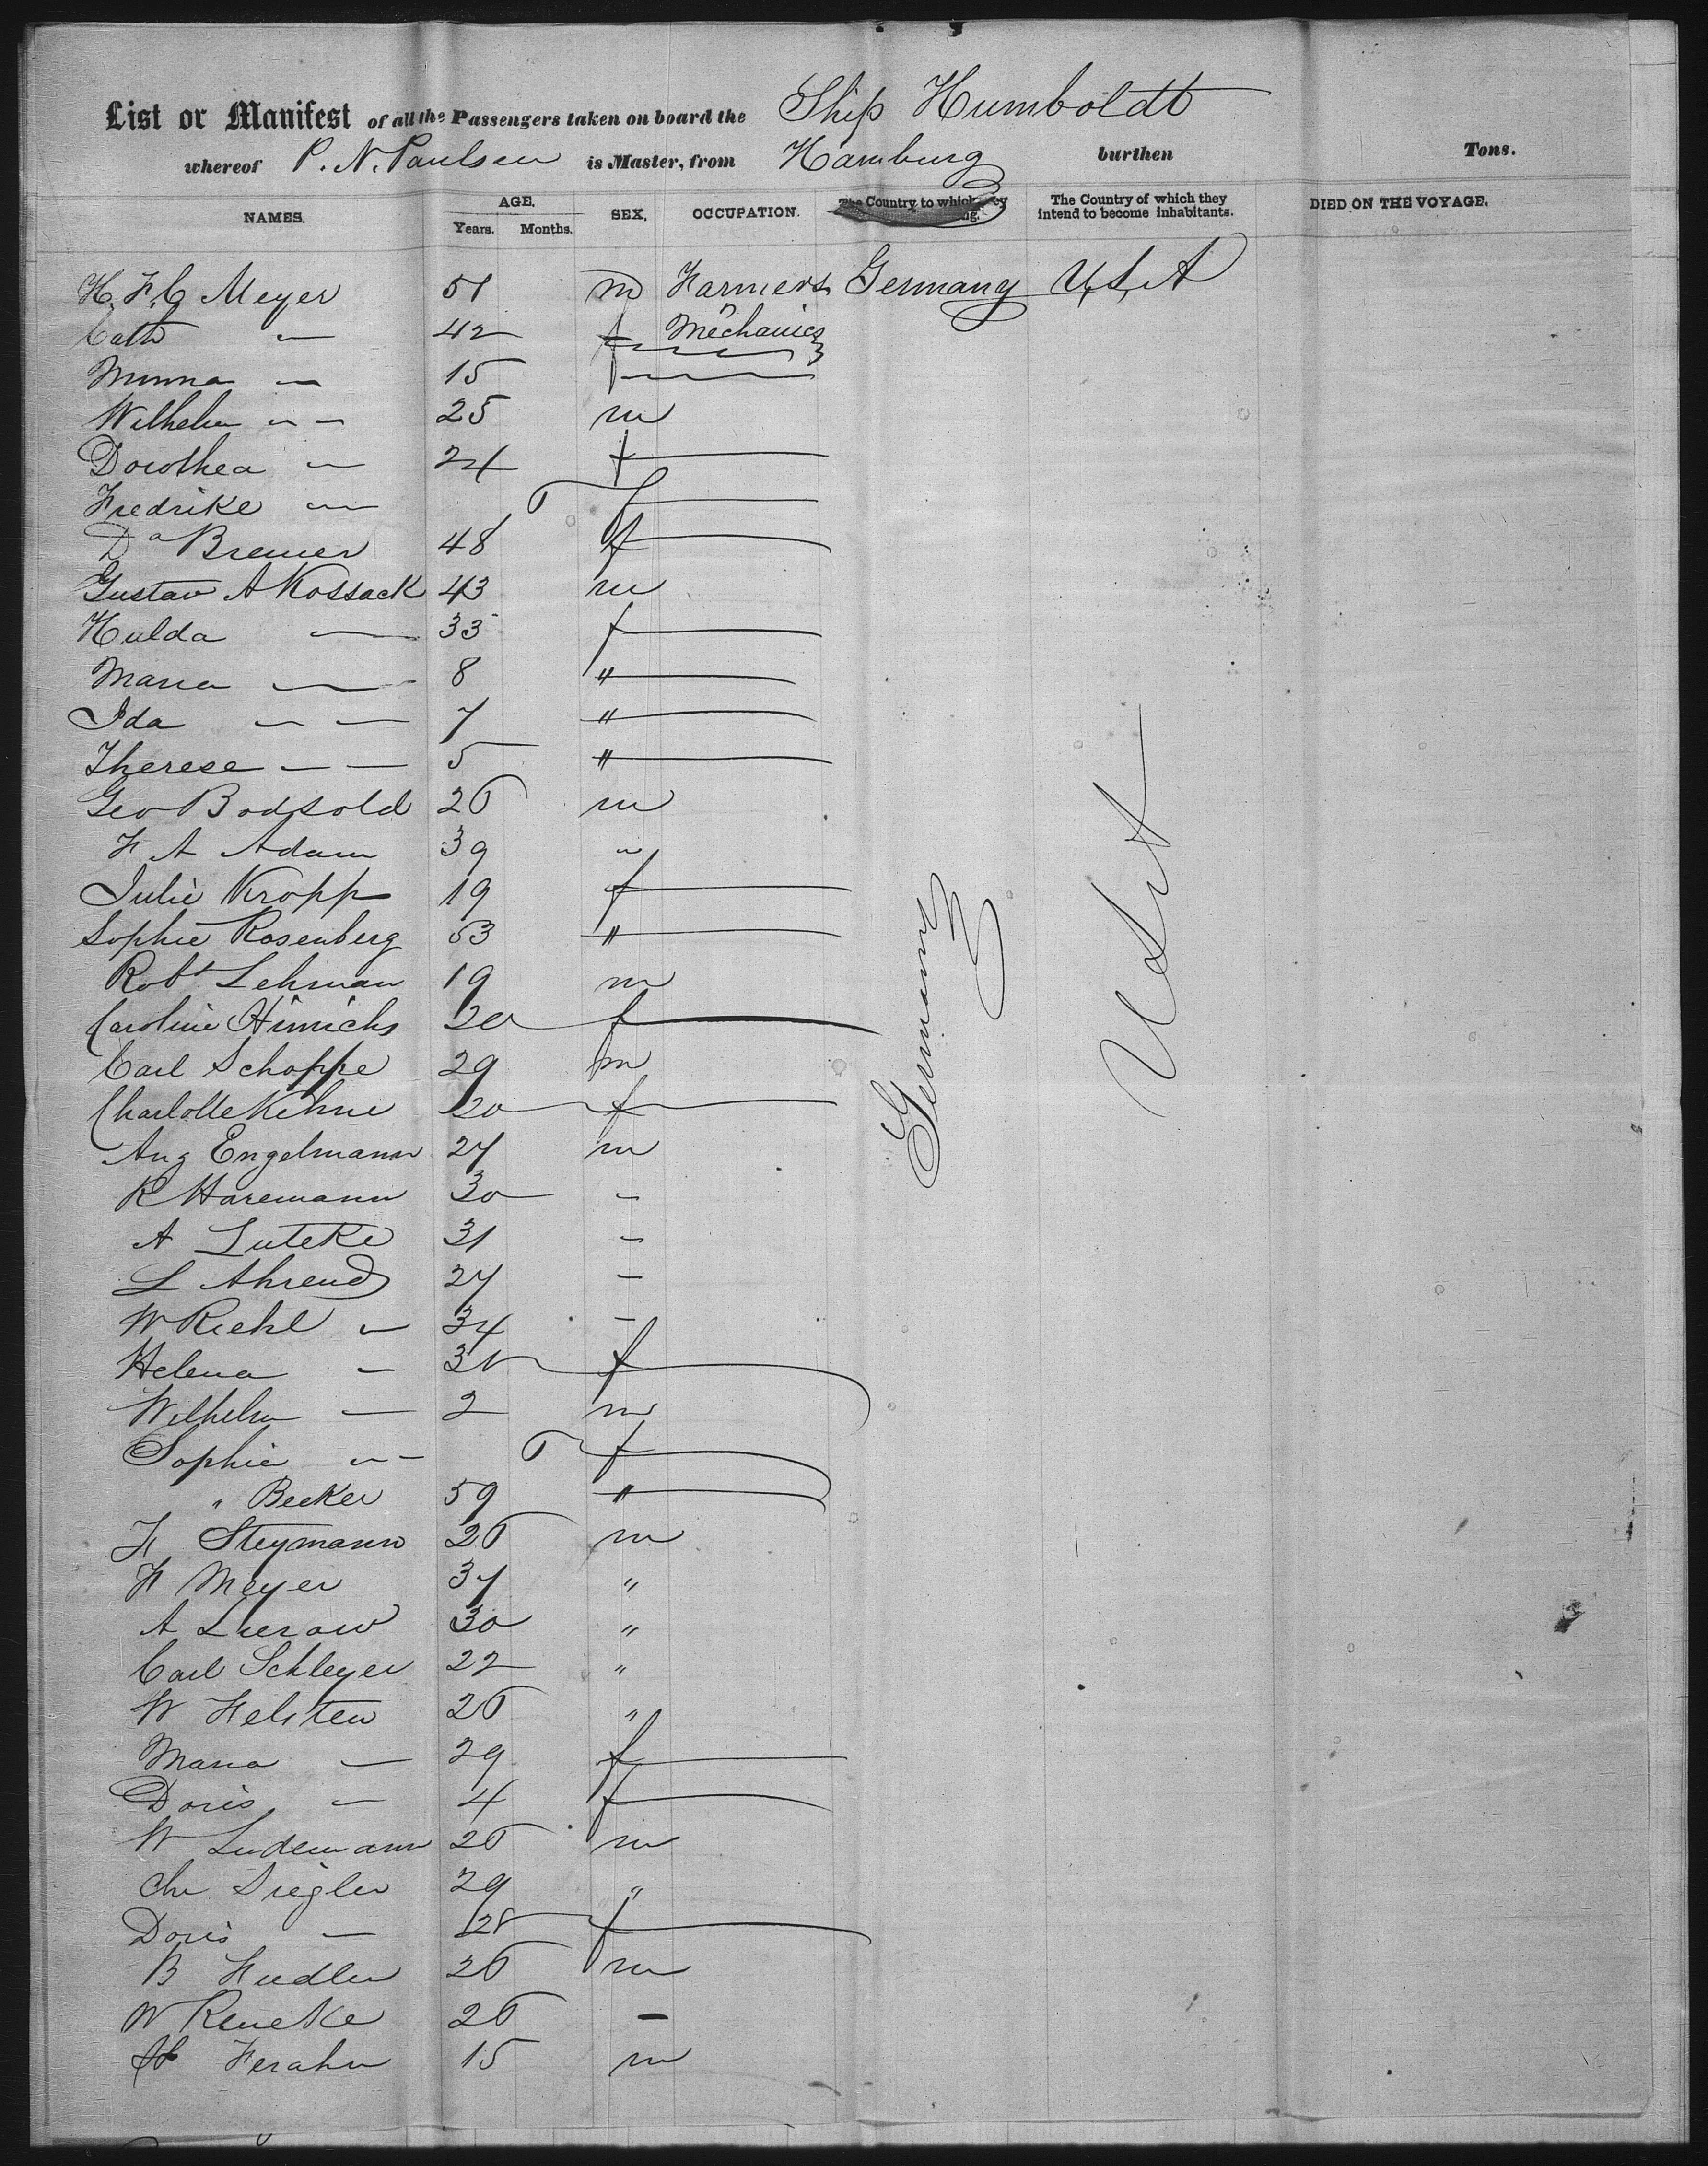 List or Manifest of all the Passengers taken on board the Ship Humboldt
whereof P. N. Paulsen is Master, from Hamburg burthen Tons.
NAMES. AGE. Years. Months. SEX. OCCUPATION. The Country to which they The Country of which they intend to become inhabitants. DIED ON THE VOYAGE.
H. F. C Meyer 51 m Farmers Germany U.S.A
Cath — 42 f Mechanics
Minna — 15 f
Wilhelm — — 25 m
Dorothea — 24 f
Fredrike — 6 f
Do Bremer 48 f
Gustav A Kossack 43 m
Hulda — 33 f
Maria — 8 "
Ida — — 7 "
Therese — — 5 "
Geo 26 m
F A Adam 39 "
Julie Kropp 19 f
Sophie Rosenberg 53 "
Robt Lehman 19 m
Caroline Hinrichs 20 f
Carl Schoppe 29 m
Charlotte Kihne 20 f
Aug Engelmann 27 m
R Haremann 30 -
A Luteke 31 -
L Ahrend 27 -
W Riehl — 34 -
Helena — f
Wilhelm — 2 m
Sophie — — 6 f
" Becker 59 "
F Steymann 26 m
F Meyer 37 "
A Luerow 30 "
Carl Schleyer 22 "
W Helsten 26 "
Maria — 29 f
Doris — 4 f
W Ludemann 26 m
Chr Siegler 29 "
Doris — 28 f
B 26 m
W Reneke 26 -
Ferahn 15 m
Germany
USA